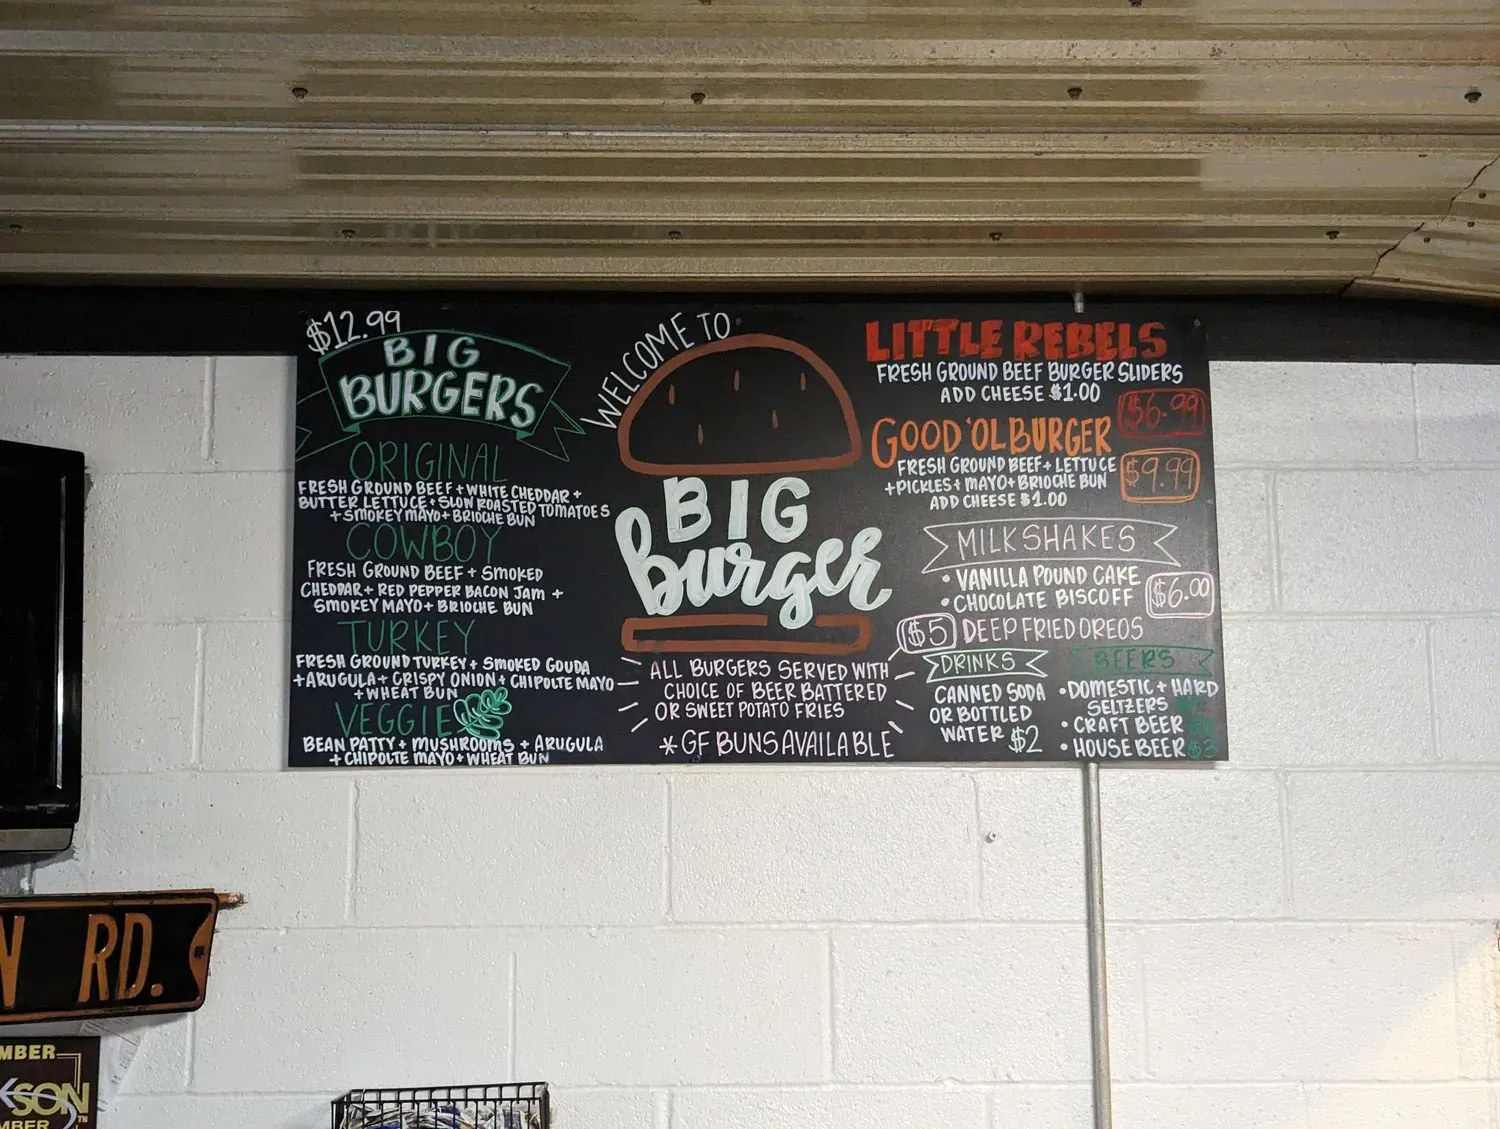 $12.99
BIG
BURGERS
ORIGINAL
FRESH GROUND BEEF + WHITE CHEDDAR +
BUTTER LETTUCE + SLOW ROASTED TOMATOES
+ SMOKEY MAYO + BRIOCHE BUN
COWBOY
FRESH GROUND BEEF + SMOKED
CHEDDAR + RED PEPPER BACON JAM +
SMOKEY MAYO + BRIOCHE BUN
TURKEY
FRESH GROUND TURKEY + SMOKED GOUDA
+ ARUGULA + CRISPY ONION + CHIPOLTE MAYO
+ WHEAT BUN
VEGGIE
BEAN PATTY + MUSHROOMS + ARUGULA
+ CHIPOLTE MAYO + WHEAT BUN
WELCOME TO
BIG
burger
ALL BURGERS SERVED WITH
CHOICE OF BEER BATTERED
OR SWEET POTATO FRIES
* GF BUNS AVAILABLE
LITTLE REBELS
FRESH GROUND BEEF BURGER SLIDERS
ADD CHEESE $1.00
$6.99
GOOD 'OL BURGER
FRESH GROUND BEEF + LETTUCE
+ PICKLES + MAYO + BRIOCHE BUN
ADD CHEESE $1.00
$9.99
MILKSHAKES
• VANILLA POUND CAKE
• CHOCOLATE BISCOFF
$6.00
$5 DEEP FRIED OREOS
DRINKS
CANNED SODA
OR BOTTLED
WATER $2
BEERS
• DOMESTIC + HARD
SELTZERS
• CRAFT BEER
• HOUSE BEER $3
N RD.
MBER
KSON
MBER